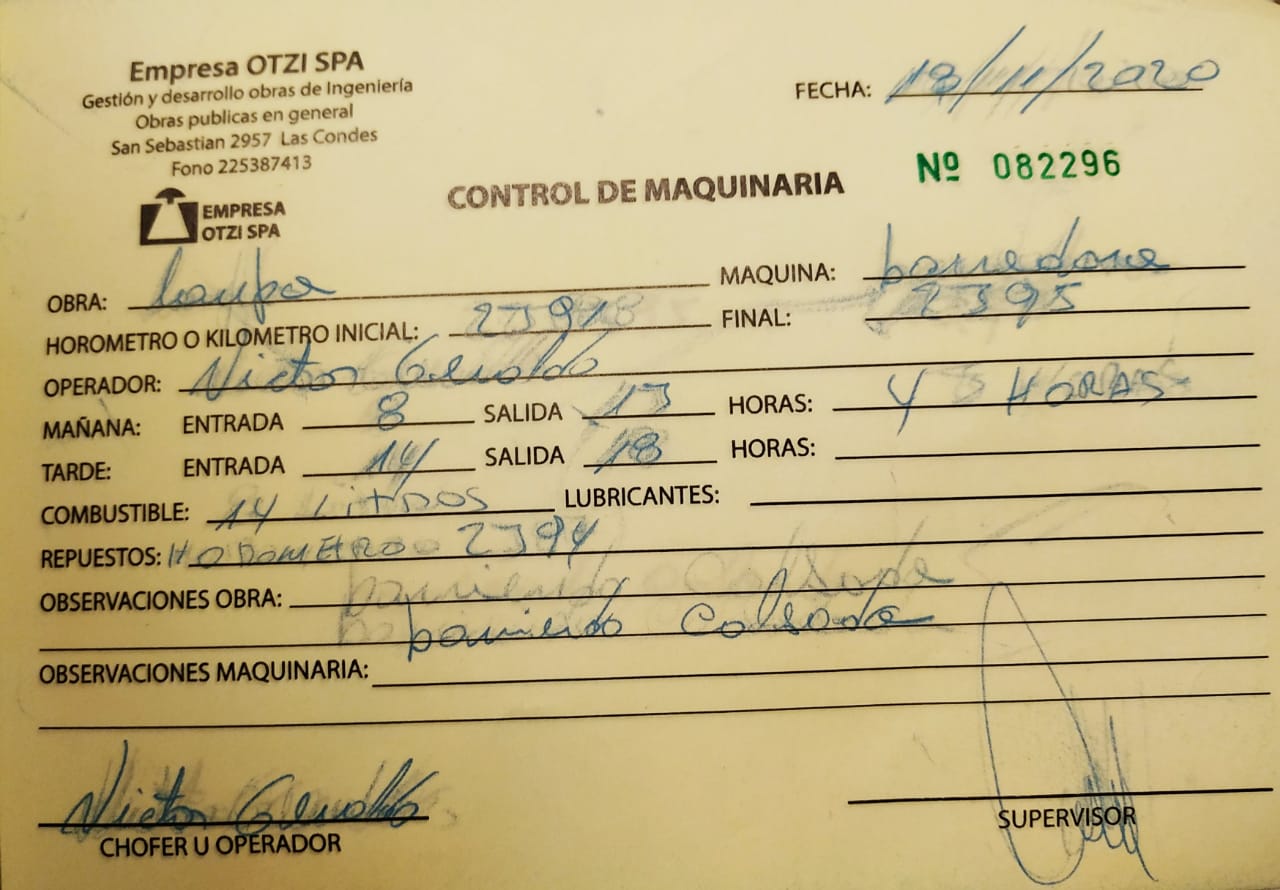 Empresa OTZI SPA
Gestión y desarrollo obras de Ingeniería
Obras publicas en general
San Sebastian 2957 Las Condes
Fono 225387413
EMPRESA
OTZI SPA
FECHA: 18/11/2020
Nº 082296
CONTROL DE MAQUINARIA
OBRA: Lampa MAQUINA: barredora
HOROMETRO O KILOMETRO INICIAL: 2391 FINAL: 2395
OPERADOR: Victor
MAÑANA: ENTRADA 8 SALIDA 13 HORAS: 4 HORAS
TARDE: ENTRADA 14 SALIDA 18 HORAS:
COMBUSTIBLE: 14 LITROS LUBRICANTES:
REPUESTOS: HODOMETRO 2394
OBSERVACIONES OBRA:
barriendo Calsada
OBSERVACIONES MAQUINARIA:
Victor
CHOFER U OPERADOR
SUPERVISOR